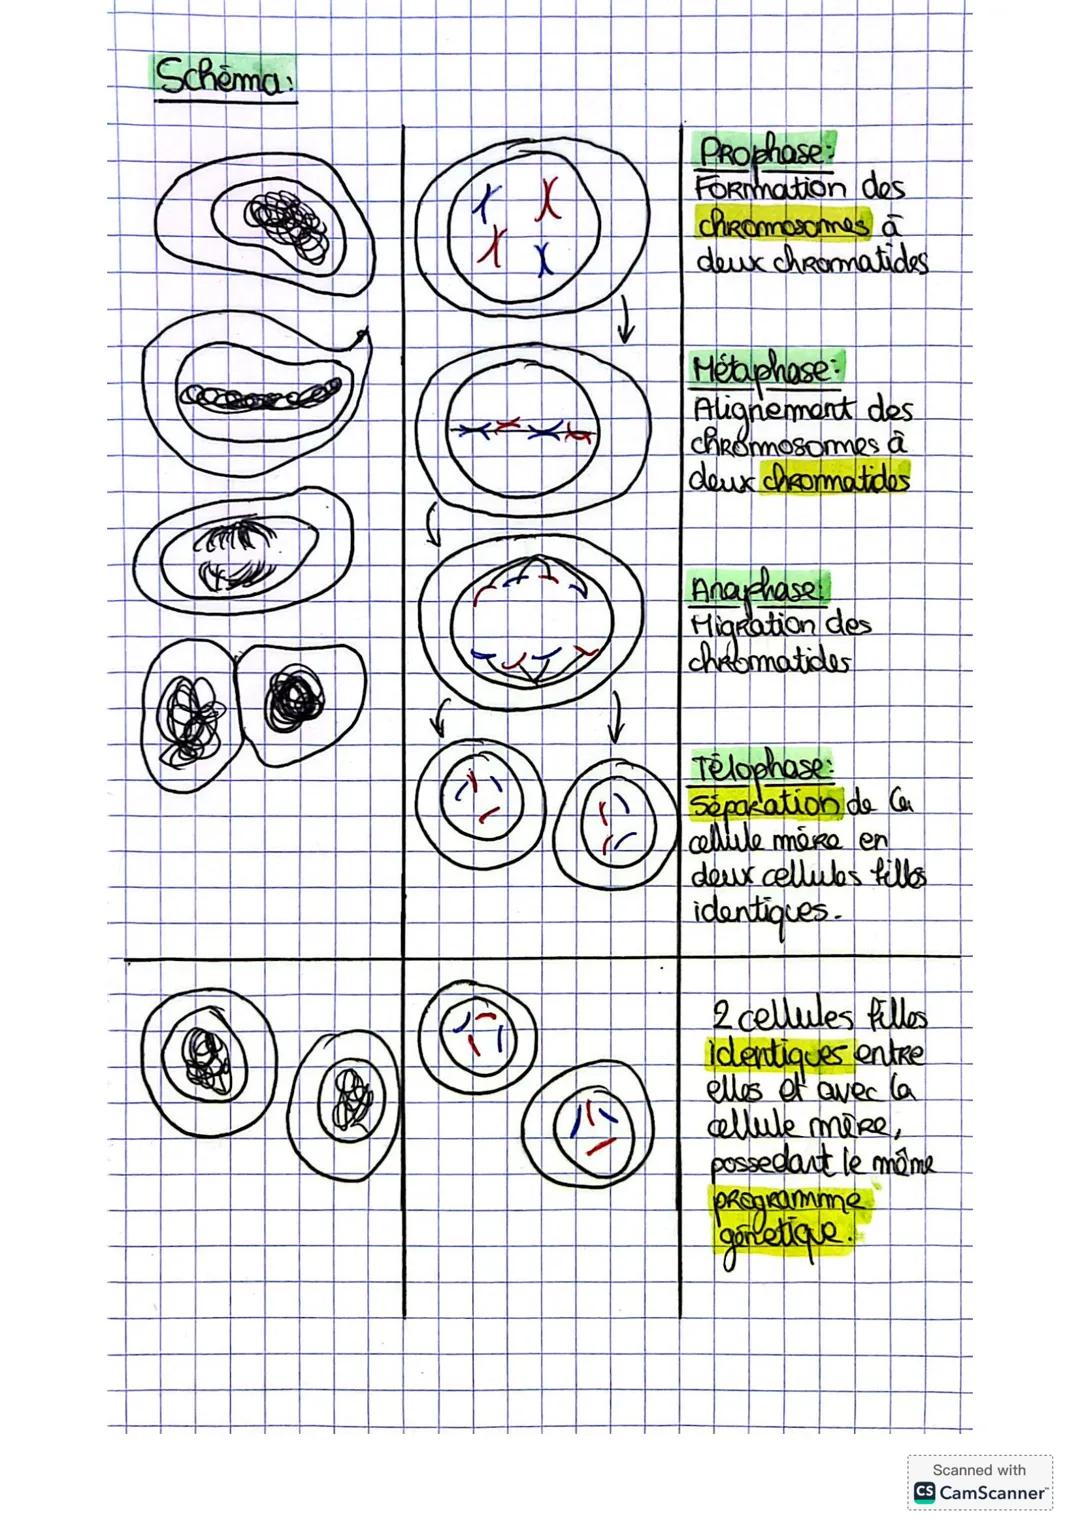 Schéma:
Prophase:
Formation des
chromosomes à
deux chromatides
Métaphase:
Alignement des
chromosomes à
deux chromatides
Anaphase:
Migration des
chromatides
Télophase:
Séparation de la
cellule mère en
deux cellules filles
identiques.
2 cellules filles
identiques entre
elles et avec la
cellule mère,
possedant le même
programme
génetique.
Scanned with
CS CamScanner